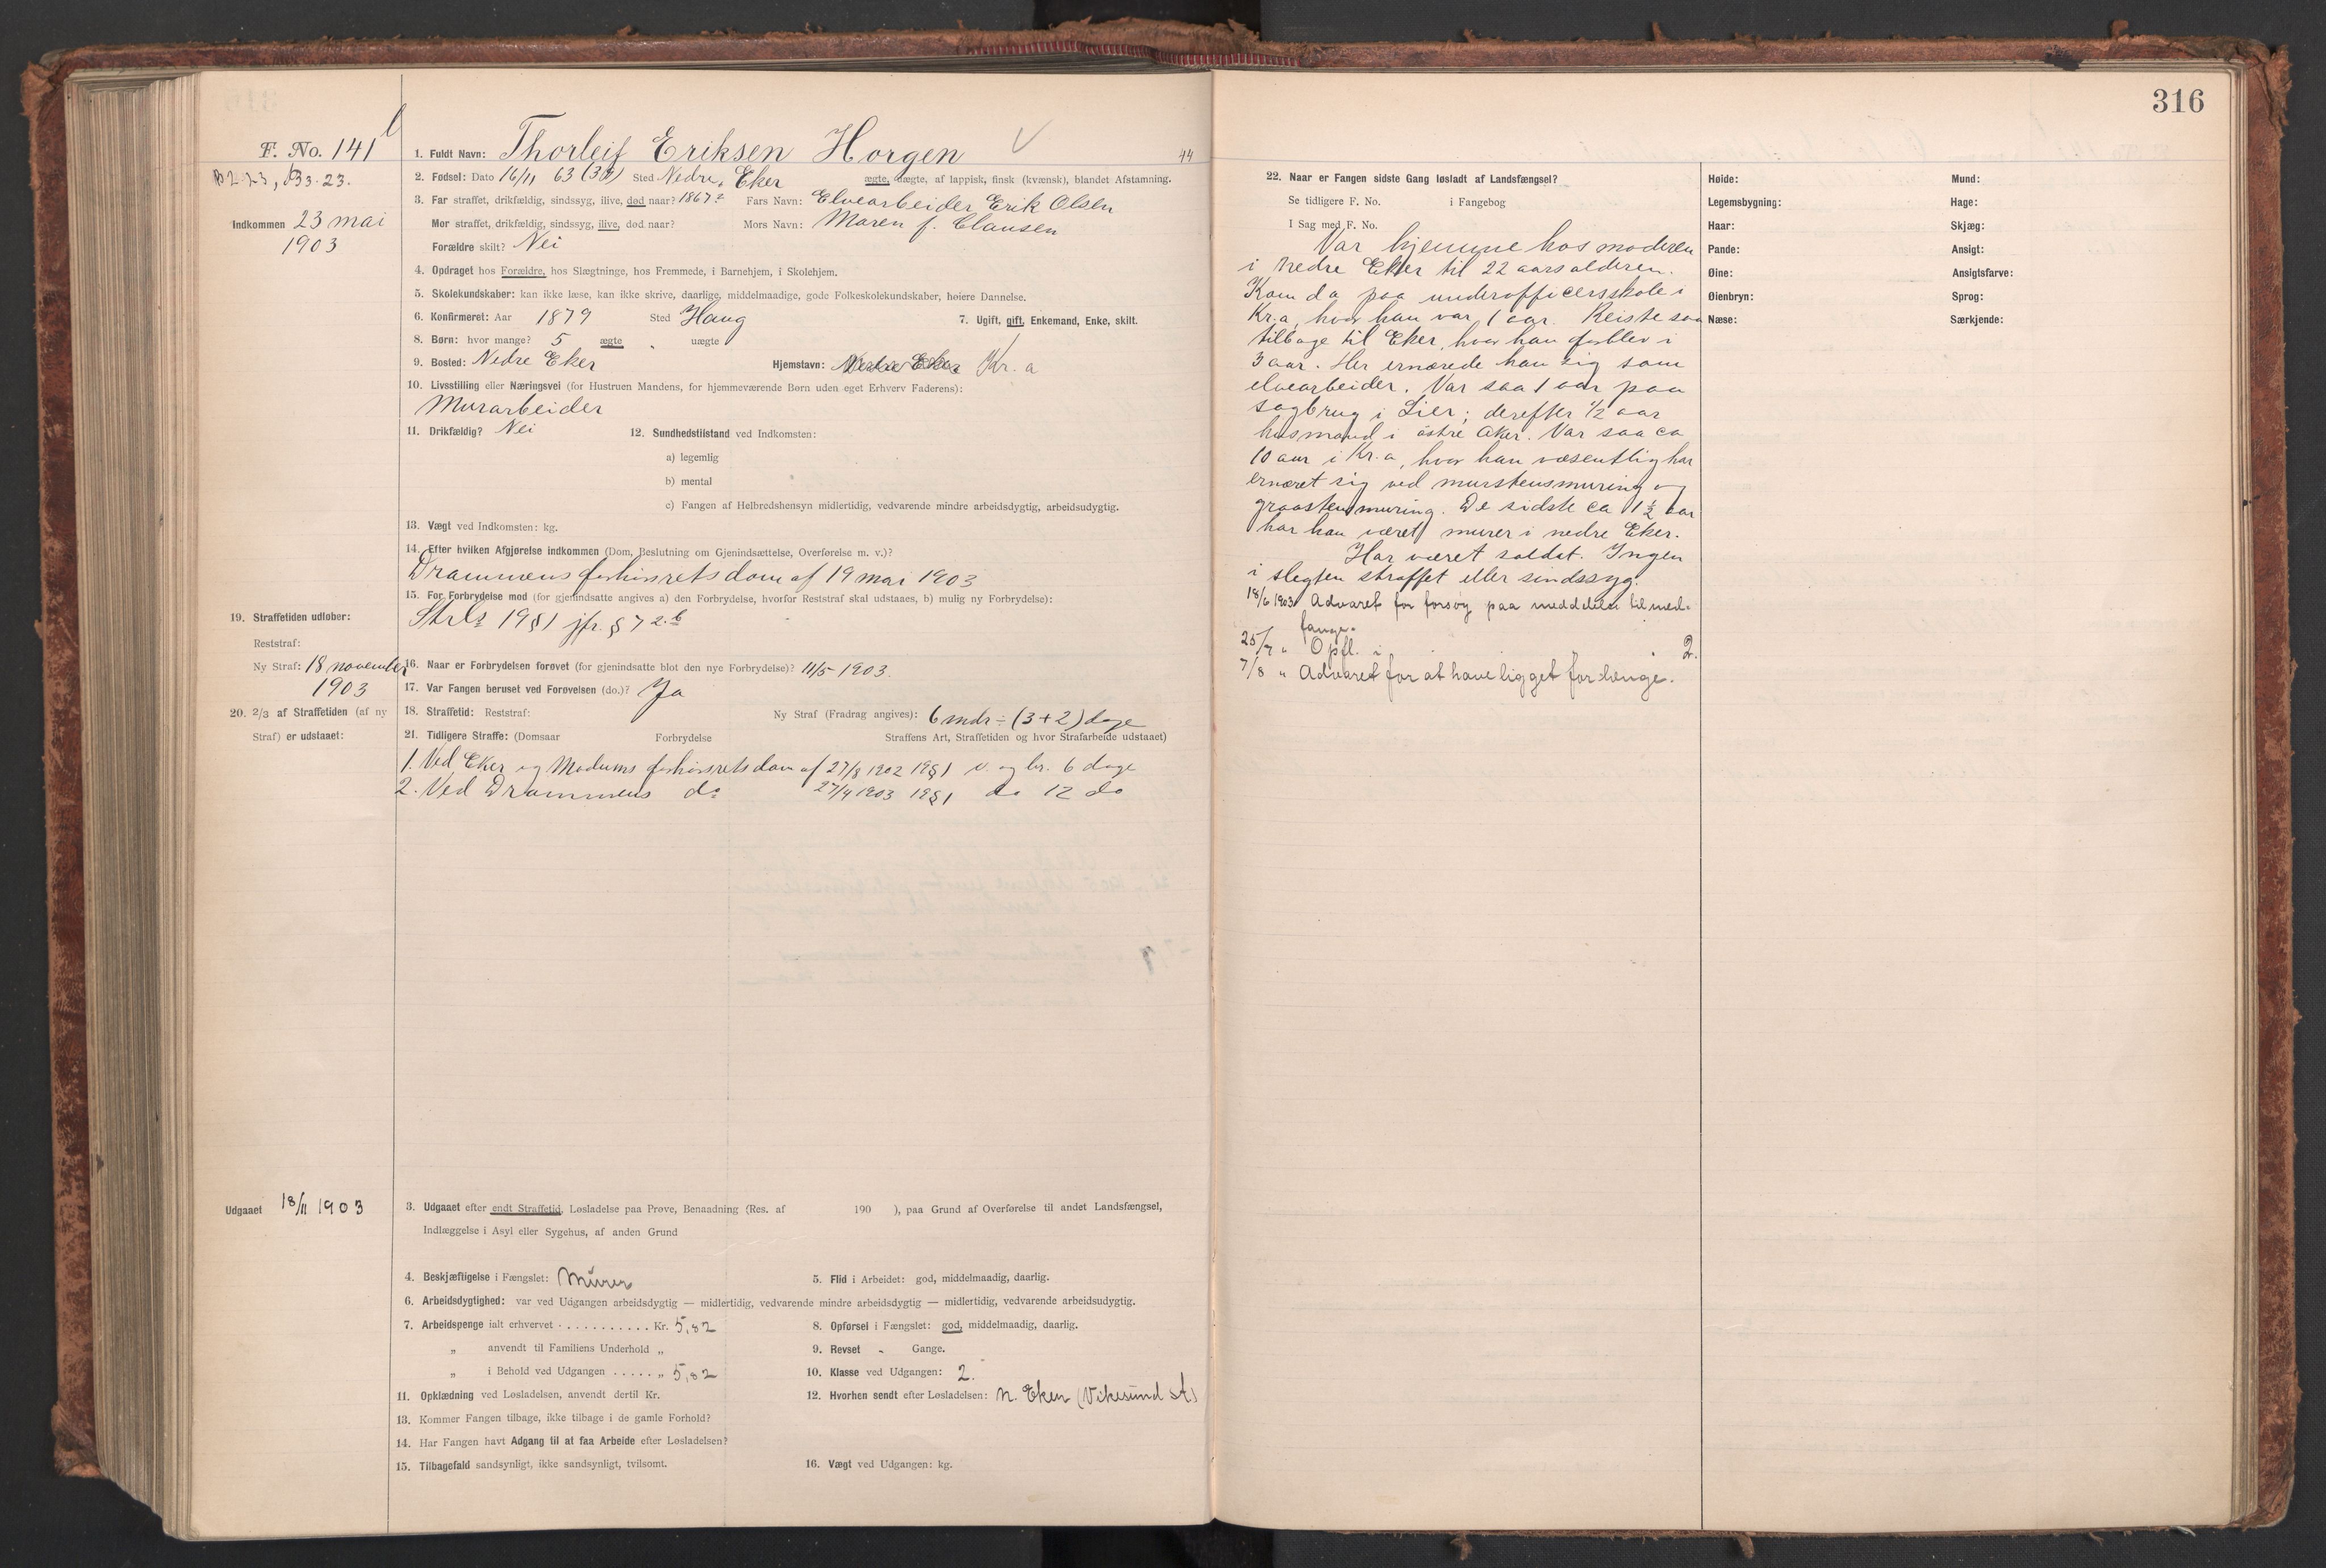 316
F. No. 141
B 2-23, B3-23.
Indkommen 23 mai
1903
1. Fuldt Navn: Thorleif Eriksen Horgen 44
2. Fødsel: Dato 16/11 63 (39) Sted Nedre Eker ægte, uægte, af lappisk, finsk (kvænsk), blandet Afstamning.
3. Far straffet, drikfældig, sindssyg, ilive, død naar? 1867? Fars Navn: Elvearbeider Erik Olsen
Mor straffet, drikfældig, sindssyg, ilive, død naar? Mors Navn: Maren f. Clausen
Forældre skilt? Nei
4. Opdraget hos Forældre, hos Slægtninge, hos Fremmede, i Barnehjem, i Skolehjem.
5. Skolekundskaber: kan ikke læse, kan ikke skrive, daarlige, middelmaadige, gode Folkeskolekundskaber, høiere Dannelse.
6. Konfirmeret: Aar 1879 Sted Haug 7. Ugift, gift, Enkemand, Enke, skilt.
8. Børn: hvor mange? 5 ægte " uægte
9. Bosted: Nedre Eker Hjemstavn: Nedre Eker Kr.a
10. Livsstilling eller Næringsvei (for Hustruen Mandens, for hjemmeværende Børn uden eget Erhverv Faderens):
Murarbeider
11. Drikfældig? Nei 12. Sundhedstilstand ved Indkomsten:
a) legemlig
b) mental
c) Fangen af Helbredshensyn midlertidig, vedvarende mindre arbeidsdygtig, arbeidsudygtig.
13. Vægt ved Indkomsten: kg.
14. Efter hvilken Afgjørelse indkommen (Dom, Beslutning om Gjenindsættelse, Overførelse m. v.)?
Drammens forhørsretsdom af 19 mai 1903
15. For Forbrydelse mod (for gjenindsatte angives a) den Forbrydelse, hvorfor Reststraf skal udstaaes, b) mulig ny Forbrydelse):
Strl 19 § 1 jfr. § 7 2. b
19. Straffetiden udløber:
Reststraf:
Ny Straf: 18 november
1903
16. Naar er Forbrydelsen forøvet (for gjenindsatte blot den nye Forbrydelse)? 11/5-1903.
17. Var Fangen beruset ved Forøvelsen (do.)? Ja
20. 2/3 af Straffetiden (af ny
Straf) er udstaaet:
18. Straffetid: Reststraf: Ny Straf (Fradrag angives): 6 mdr ÷ (3+2) dage
21. Tidligere Straffe: (Domsaar Forbrydelse Straffens Art, Straffetiden og hvor Strafarbeide udstaaet)
1. Ved Eker og Modums forhørsretsdom af 27/8 1902 19 § 1 v. og br. 6 dage
2. Ved Drammens do 27/4 1903 19 § 1 do 12 do
Udgaaet 18/11 1903
3. Udgaaet efter endt Straffetid, Løsladelse paa Prøve, Benaadning (Res. af 190 ), paa Grund af Overførelse til andet Landsfængsel,
Indlæggelse i Asyl eller Sygehus, af anden Grund
4. Beskjæftigelse i Fængslet: Murer 5. Flid i Arbeidet: god, middelmaadig, daarlig.
6. Arbeidsdygtighed: var ved Udgangen arbeidsdygtig — midlertidig, vedvarende mindre arbeidsdygtig — midlertidig, vedvarende arbeidsudygtig.
7. Arbeidspenge ialt erhvervet . . . . . . . . . . . Kr. 5,82 8. Opførsel i Fængslet: god, middelmaadig, daarlig.
„ anvendt til Familiens Underhold „ 9. Revset - Gange.
„ i Behold ved Udgangen . . . . . „ 5,82 10. Klasse ved Udgangen: 2.
11. Opklædning ved Løsladelsen, anvendt dertil Kr. 12. Hvorhen sendt efter Løsladelsen: N. Eker (Vikesund st.)
13. Kommer Fangen tilbage, ikke tilbage i de gamle Forhold?
14. Har Fangen havt Adgang til at faa Arbeide efter Løsladelsen?
15. Tilbagefald sandsynligt, ikke sandsynligt, tvilsomt. 16. Vægt ved Udgangen: kg.
22. Naar er Fangen sidste Gang løsladt af Landsfængsel?
Se tidligere F. No. i Fangebog
I Sag med F. No.
Var hjemme hos moderen
i nedre Eker til 22 aarsalderen.
Kom da paa underofficersskole i
Kr.a, hvor han var 1 aar. Reiste saa
tilbage til Eker, hvor han forblev i
3 aar. Her ernærede han sig som
elvearbeider. Var saa 1 aar paa
sagbrug i Lier; derefter 1/2 aar
husmand i østre Aker. Var saa ca
10 aar i Kr.a, hvor han væsentlig har
ernæret sig ved murstensmuring og
graastensmuring. De sidste ca 1 1/2 aar
har han været murer i nedre Eker.
Har været soldat. Ingen
i slegten straffet eller sindssyg.
18/6 1903 Advaret for forsøg paa meddelelse til med-
fange.
25/7 " Opfl. i 2.
7/8 " Advaret for at have ligget for længe.
Høide: Mund:
Legemsbygning: Hage:
Haar: Skjæg:
Pande: Ansigt:
Øine: Ansigtsfarve:
Øienbryn: Sprog:
Næse: Særkjende: